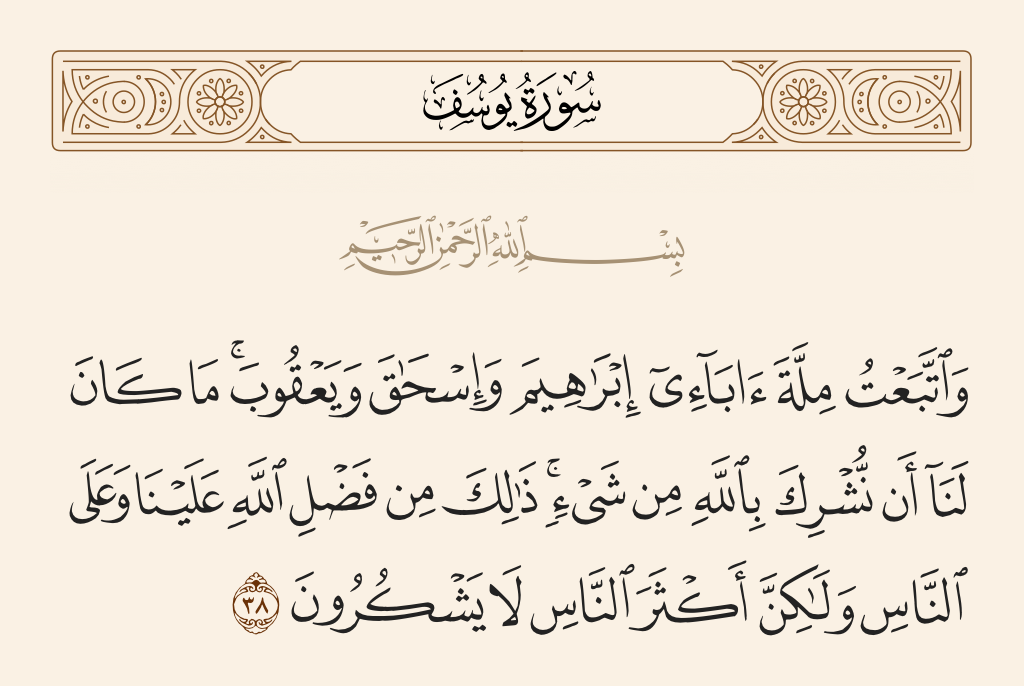 سُورَةُ يُوسُفَ
بِسْمِ ٱللَّهِ ٱلرَّحْمَٰنِ ٱلرَّحِيمِ
وَٱتَّبَعْتُ مِلَّةَ ءَابَآءِىٓ إِبْرَٰهِيمَ وَإِسْحَٰقَ وَيَعْقُوبَ ۚ مَا كَانَ
لَنَآ أَن نُّشْرِكَ بِٱللَّهِ مِن شَىْءٍ ۚ ذَٰلِكَ مِن فَضْلِ ٱللَّهِ عَلَيْنَا وَعَلَى
ٱلنَّاسِ وَلَٰكِنَّ أَكْثَرَ ٱلنَّاسِ لَا يَشْكُرُونَ ٣٨